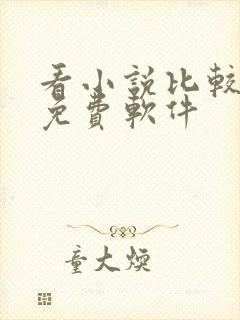 看小說比較
免費軟件
童大煥